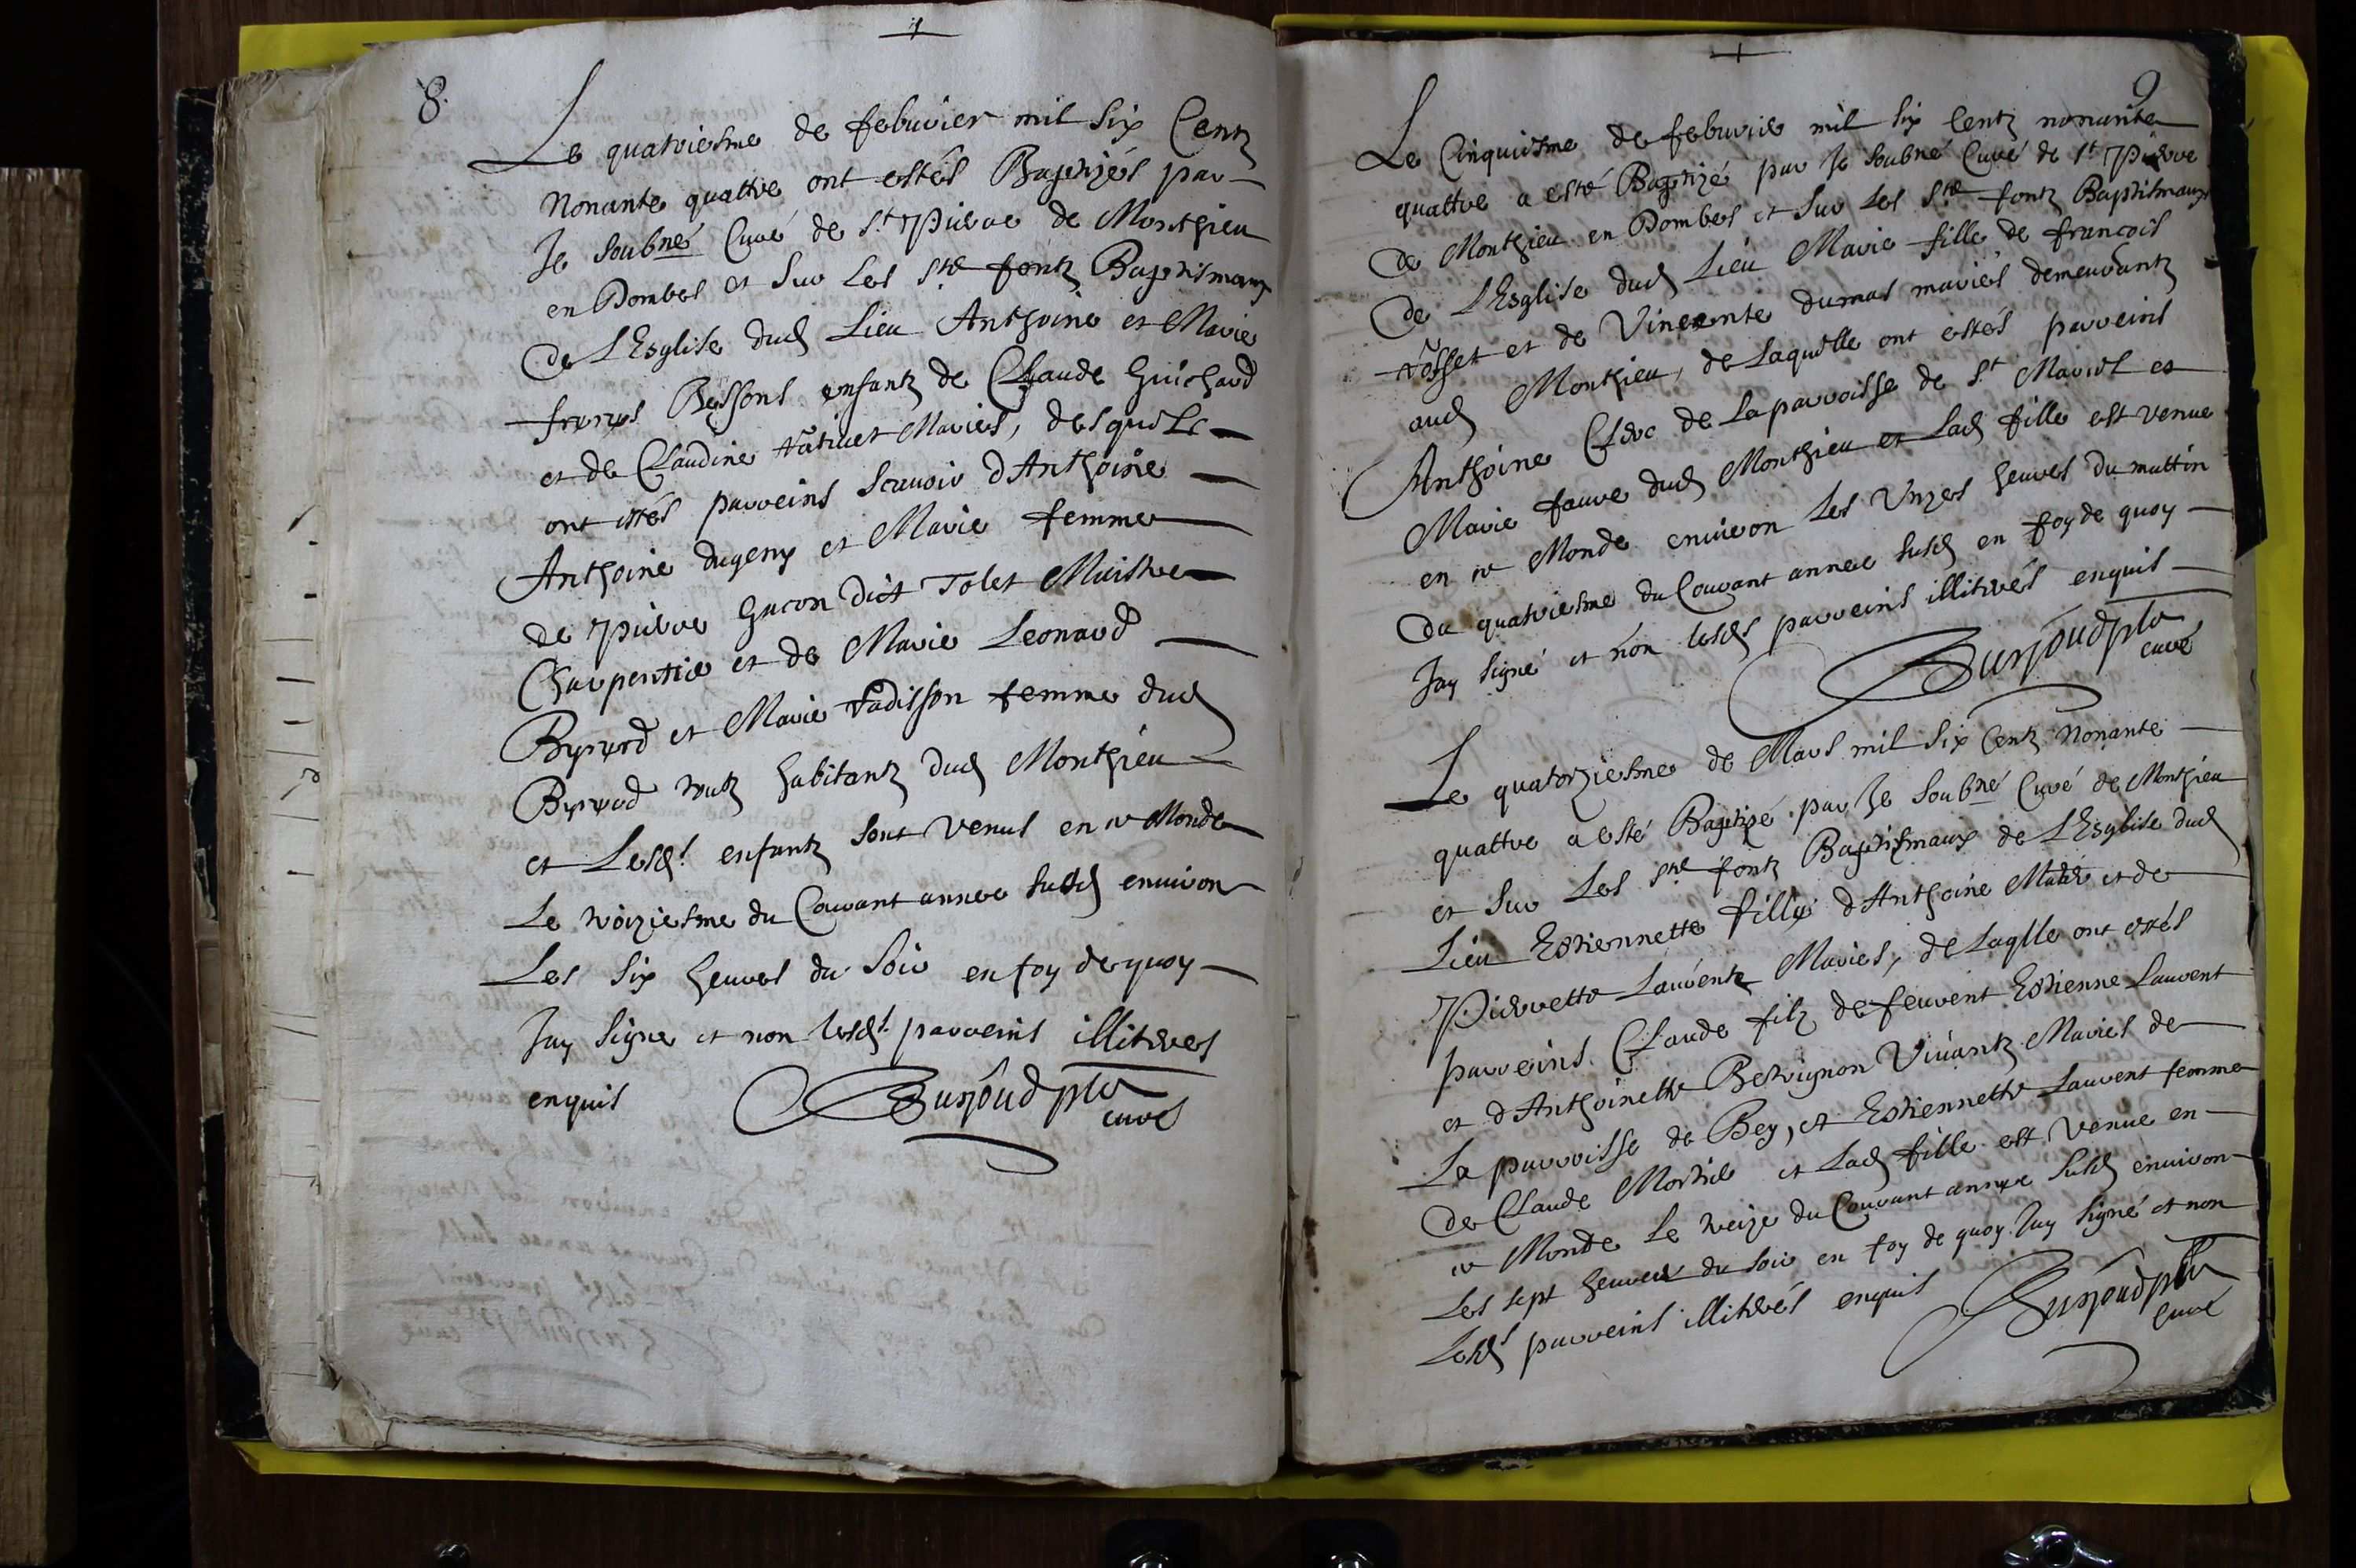 8.
Le quatriesme de febvrier mil six Centz
Nonante quattre ont estés Baptizés par
Je soubné Curé de St Pierre de Monthieu
en Dombes et Sur Les Sts fontz Baptismaux
de LEsglise dud Lieu Anthoine et Marie
freres Bessons enfantz de Claude Guichard
et de Claudine Mariés, desquelz
ont estés parreins Scavoir dAnthoine
Anthoine dugenx et Marie femme
de Pierre Gacon dict Tolet Maistre
Charpentie et de Marie Leonard
Byrerd et Marie radisson femme dud
Byrerd toutz habitantz dud Monthieu
et Lesds enfantz sont venus en ce Monde
Le troiziesme du Courant annee susd environ
Les six heures du soir en foy de quoy
Jay signe et non lesds parreins illiteres
enquis Burjoud ptre
curé
9
Le Cinquiesme de febvrie mil six Centz nonante
quattre a esté Baptizé par Je soubné Curé de St Pierre
de Monthieu en Dombes et Sur Les Sts fontz Baptismaux
de LEsglise dud Lieu Marie fille de francois
rosset et de Vincente dumas mariés demeurantz
aud Monthieu, de Laquelle ont estés parreins
Anthoine Clerc de La parroisse de St Marcel et
Marie favre dud Monthieu et Lad fille est venue
en ce Monde environ Les Unzes heures du mattin
du quatriesme du Courant annee susd en foy de quoy
Jay signé et non lesds parreins illiterés enquis
Burjoud ptre
curé
Le quatorziesme de Mars mil six Centz Nonante
quattre a esté Baptizé par Je soubné Curé de Monthieu
et Sur Les Sts fontz Baptismaux de LEsglise dud
Lieu Estiennette fille dAnthoine et de
Pierrette Laurentz Mariés, de Laqlle ont estés
parreins Claude filz de feuvent Estienne Laurent
et dAnthoinette Bertrignon Vivantz Mariés de
La parroisse de Bey, et Estiennette Laurent femme
de Claude Mortiel et Lad fille est venue en
ce Monde Le treize du Courant annee susd environ
Les sept heures du soir en foy de quoy Jay signé et non
Lesds parreins illiterés enquis Burjoud ptre
curé